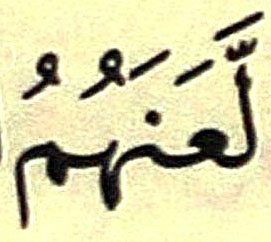 لَّعَنَهُمُ